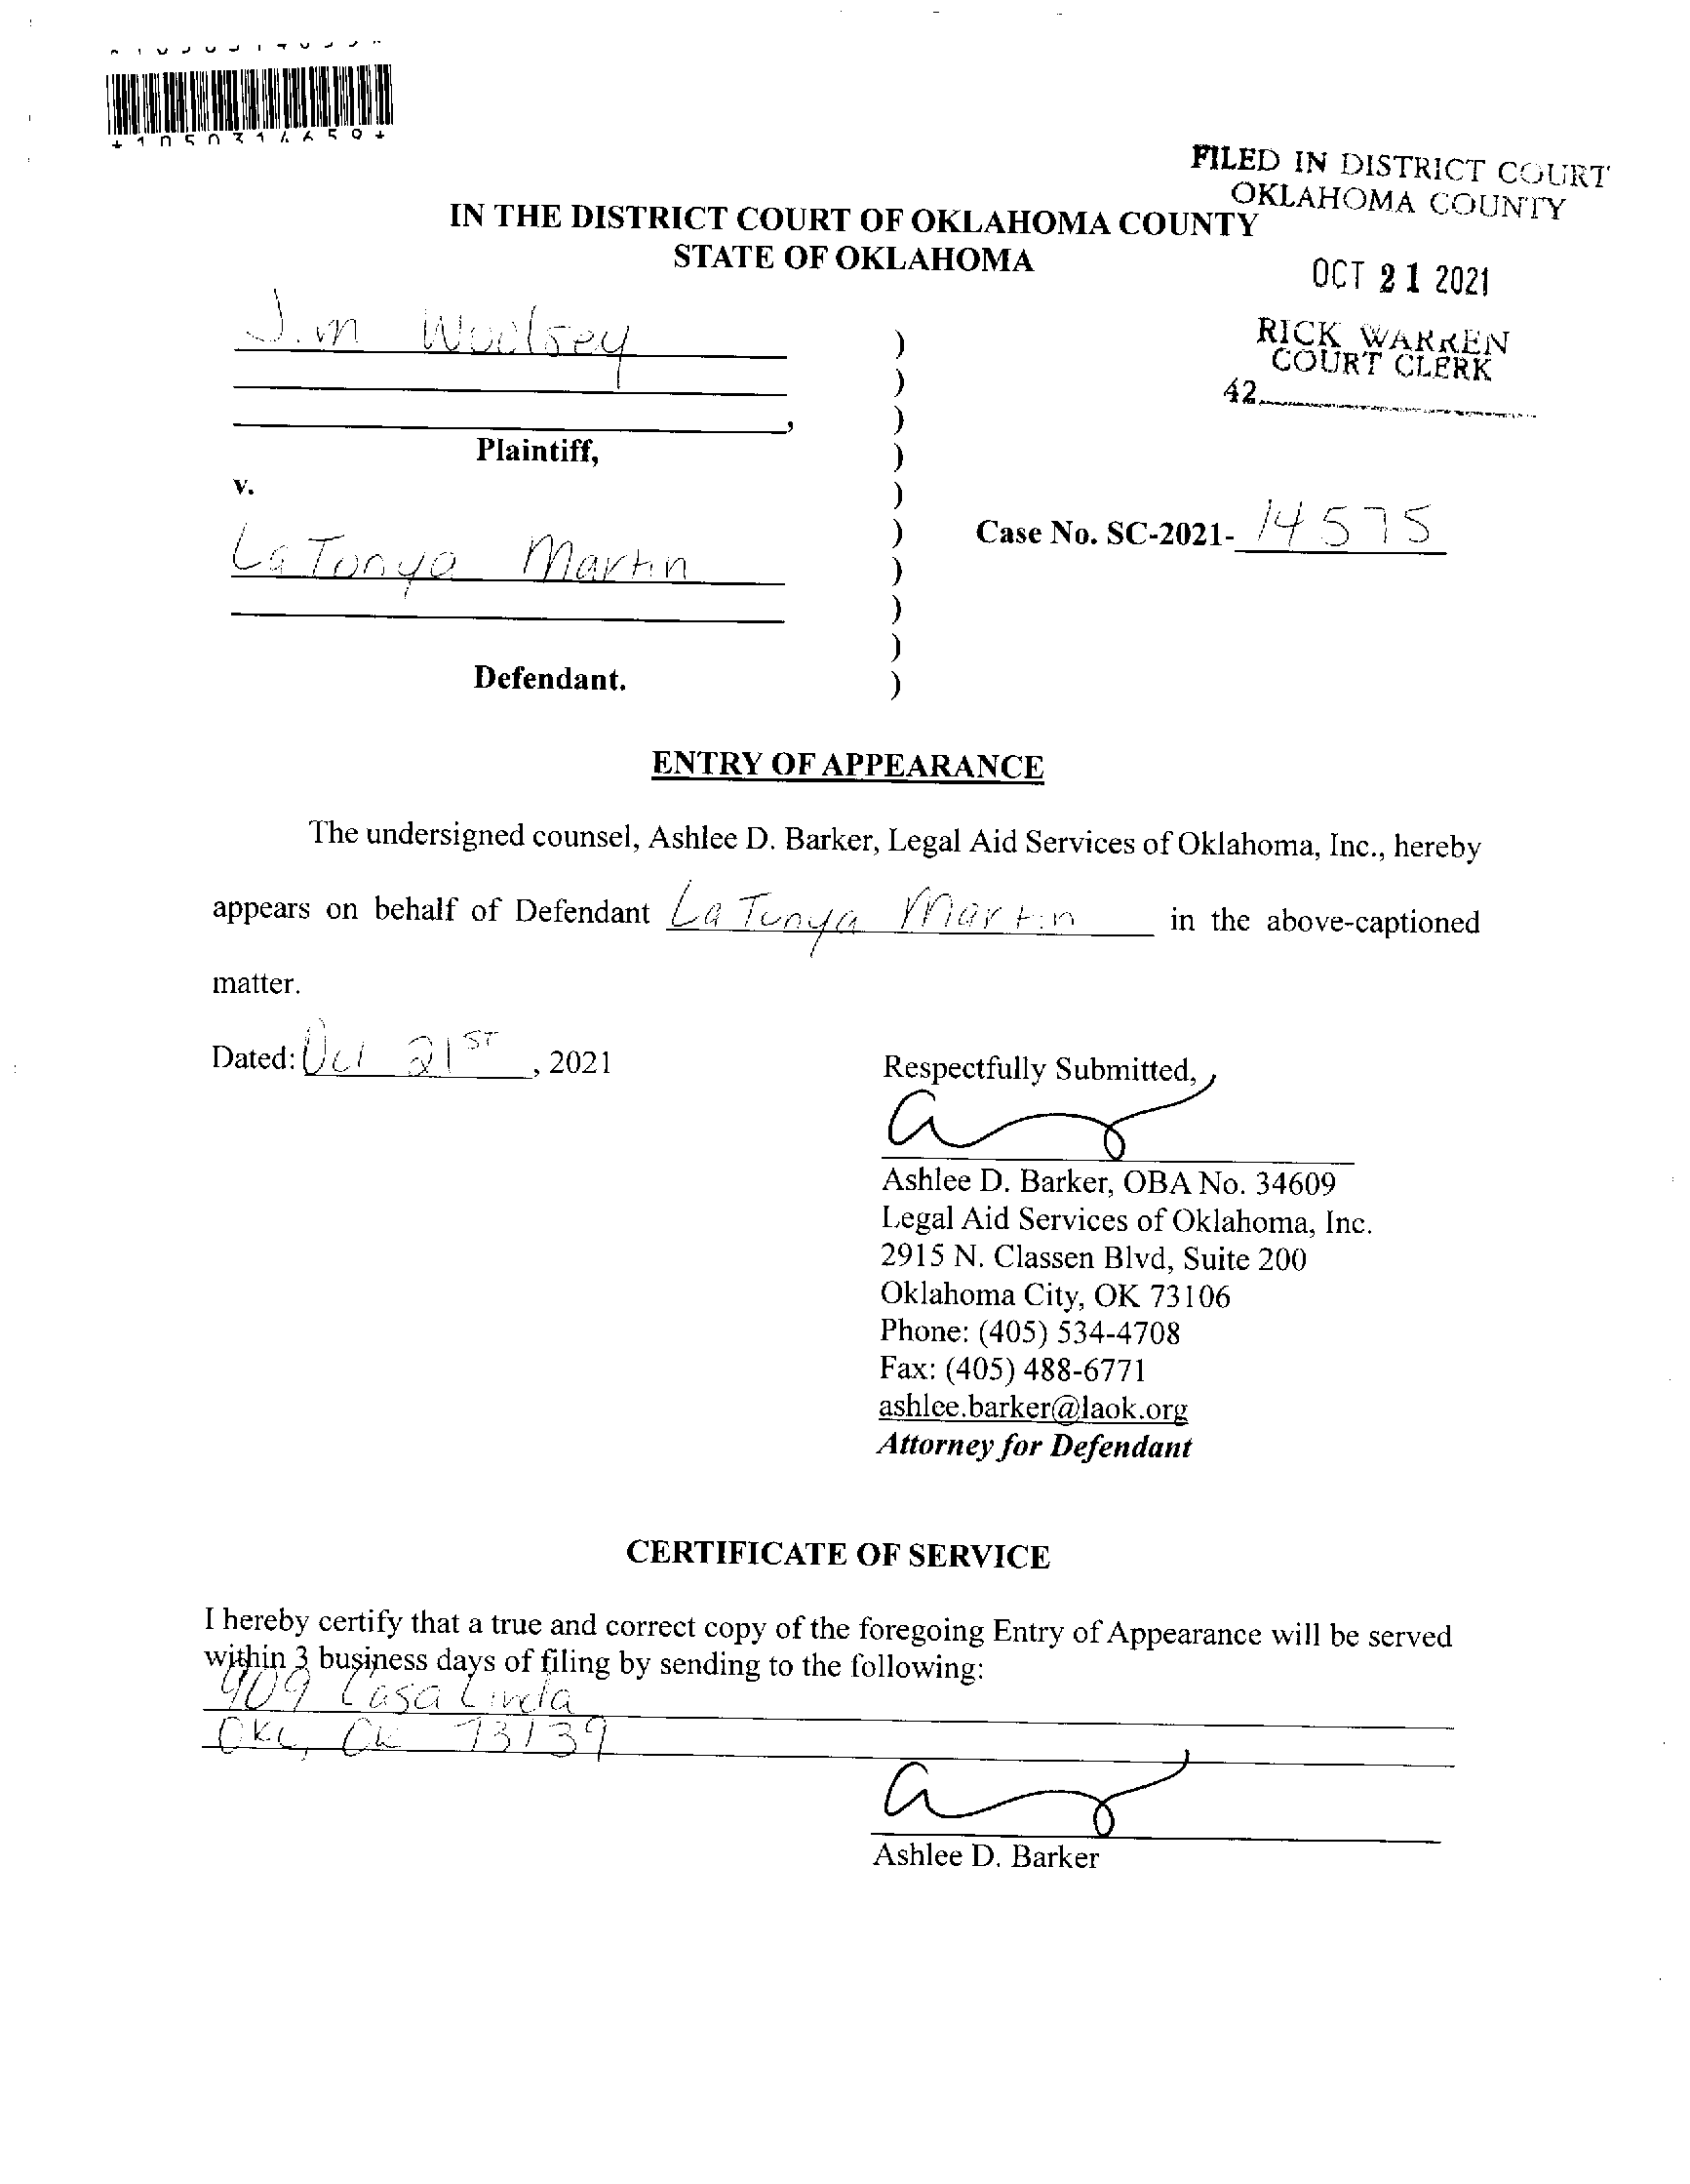 *1050314659*
FILED IN DISTRICT COURT
OKLAHOMA COUNTY
IN THE DISTRICT COURT OF OKLAHOMA COUNTY
STATE OF OKLAHOMA
OCT 21 2021
RICK WARREN
COURT CLERK
42
Jim Woolsey )
)
, )
Plaintiff, )
v. )
Case No. SC-2021- 14575
LaTonya Martin )
)
)
)
Defendant. )
ENTRY OF APPEARANCE
The undersigned counsel, Ashlee D. Barker, Legal Aid Services of Oklahoma, Inc., hereby
appears on behalf of Defendant LaTonya Martin in the above-captioned
matter.
Dated: Oct 21ST, 2021
Respectfully Submitted,
Ashlee D. Barker, OBA No. 34609
Legal Aid Services of Oklahoma, Inc.
2915 N. Classen Blvd, Suite 200
Oklahoma City, OK 73106
Phone: (405) 534-4708
Fax: (405) 488-6771
ashlee.barker@laok.org
Attorney for Defendant
CERTIFICATE OF SERVICE
I hereby certify that a true and correct copy of the foregoing Entry of Appearance will be served
within 3 business days of filing by sending to the following:
909 Casa Linda
OKC, OK 73139
Ashlee D. Barker